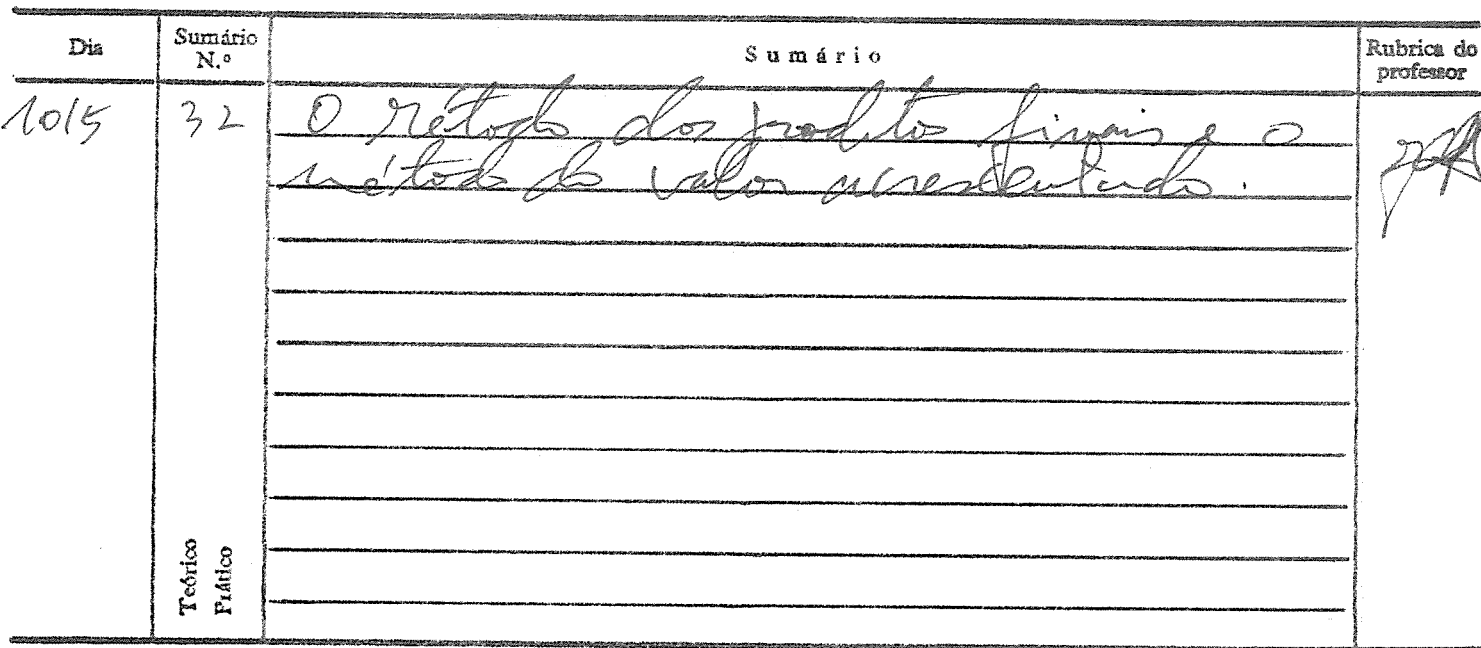 Dia Sumário N.º Sumário Rubrica do professor
10/5 32 O Método dos produtos finais e o
método do valor acrescentado.
Teórico
Prático